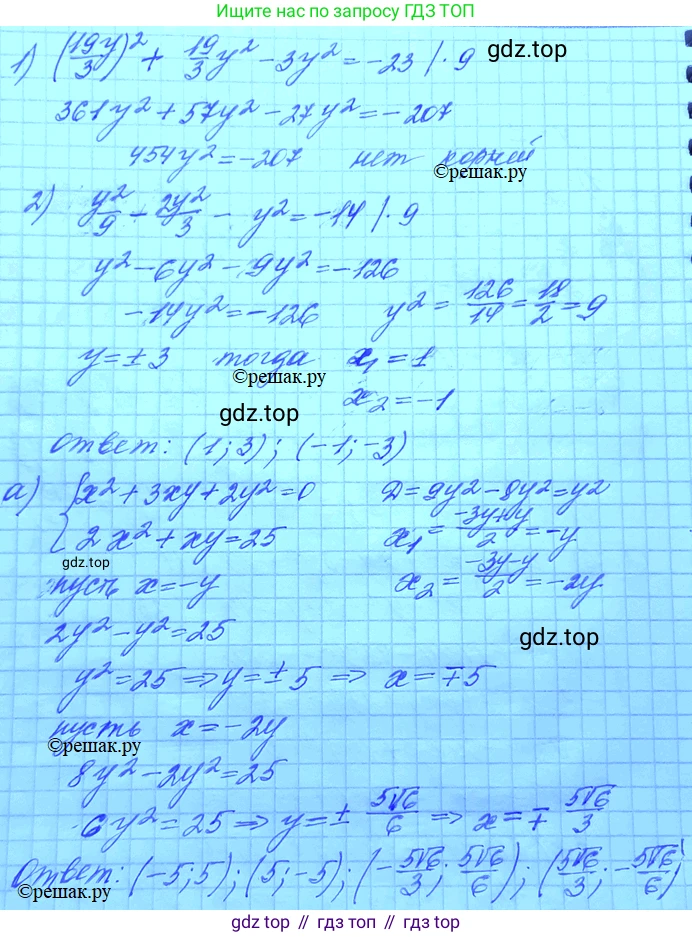 Ищите нас по запросу ГДЗ ТОП
1) (19y/3)² + 19/3 y² - 3y² = -23 | · 9
gdz.top
361y² + 57y² - 27y² = -207
454y² = -207 нет корней
©решак.ру
2) y²/9 - 2y²/3 - y² = -14 | · 9
y² - 6y² - 9y² = -126
-14y² = -126 y² = 126/14 = 18/2 = 9
y = ± 3 тогда x₁ = 1
©решак.ру
x₂ = -1
gdz.top
Ответ: (1; 3); (-1; -3)
а) { x² + 3xy + 2y² = 0 D = 9y² - 8y² = y²
2x² + xy = 25 x₁ = (-3y+y)/2 = -y
gdz.top
пусть x = -y x₂ = (-3y-y)/2 = -2y
2y² - y² = 25
gdz.top
y² = 25 ⇒ y = ± 5 ⇒ x = ∓ 5
пусть x = -2y
©решак.ру
8y² - 2y² = 25
6y² = 25 ⇒ y = ± 5√6/6 ⇒ x = ∓ 5√6/3
Ответ: (-5; 5); (5; -5); (-5√6/3; 5√6/6); (5√6/3; -5√6/6)
©решак.ру
gdz top // гдз топ // gdz.top